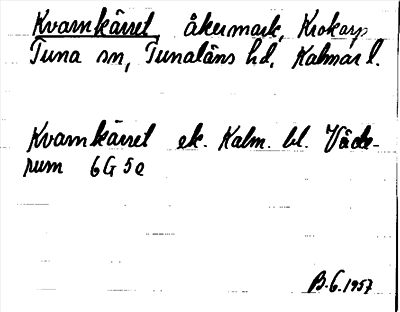 Kvarnkärret, åkermark, Krokarp
Tuna sn, Tunaläns hd, Kalmar l.
Kvarnkärret ek. Kalm. bl. Väde-
rum 6G 5e
B.G. 1957